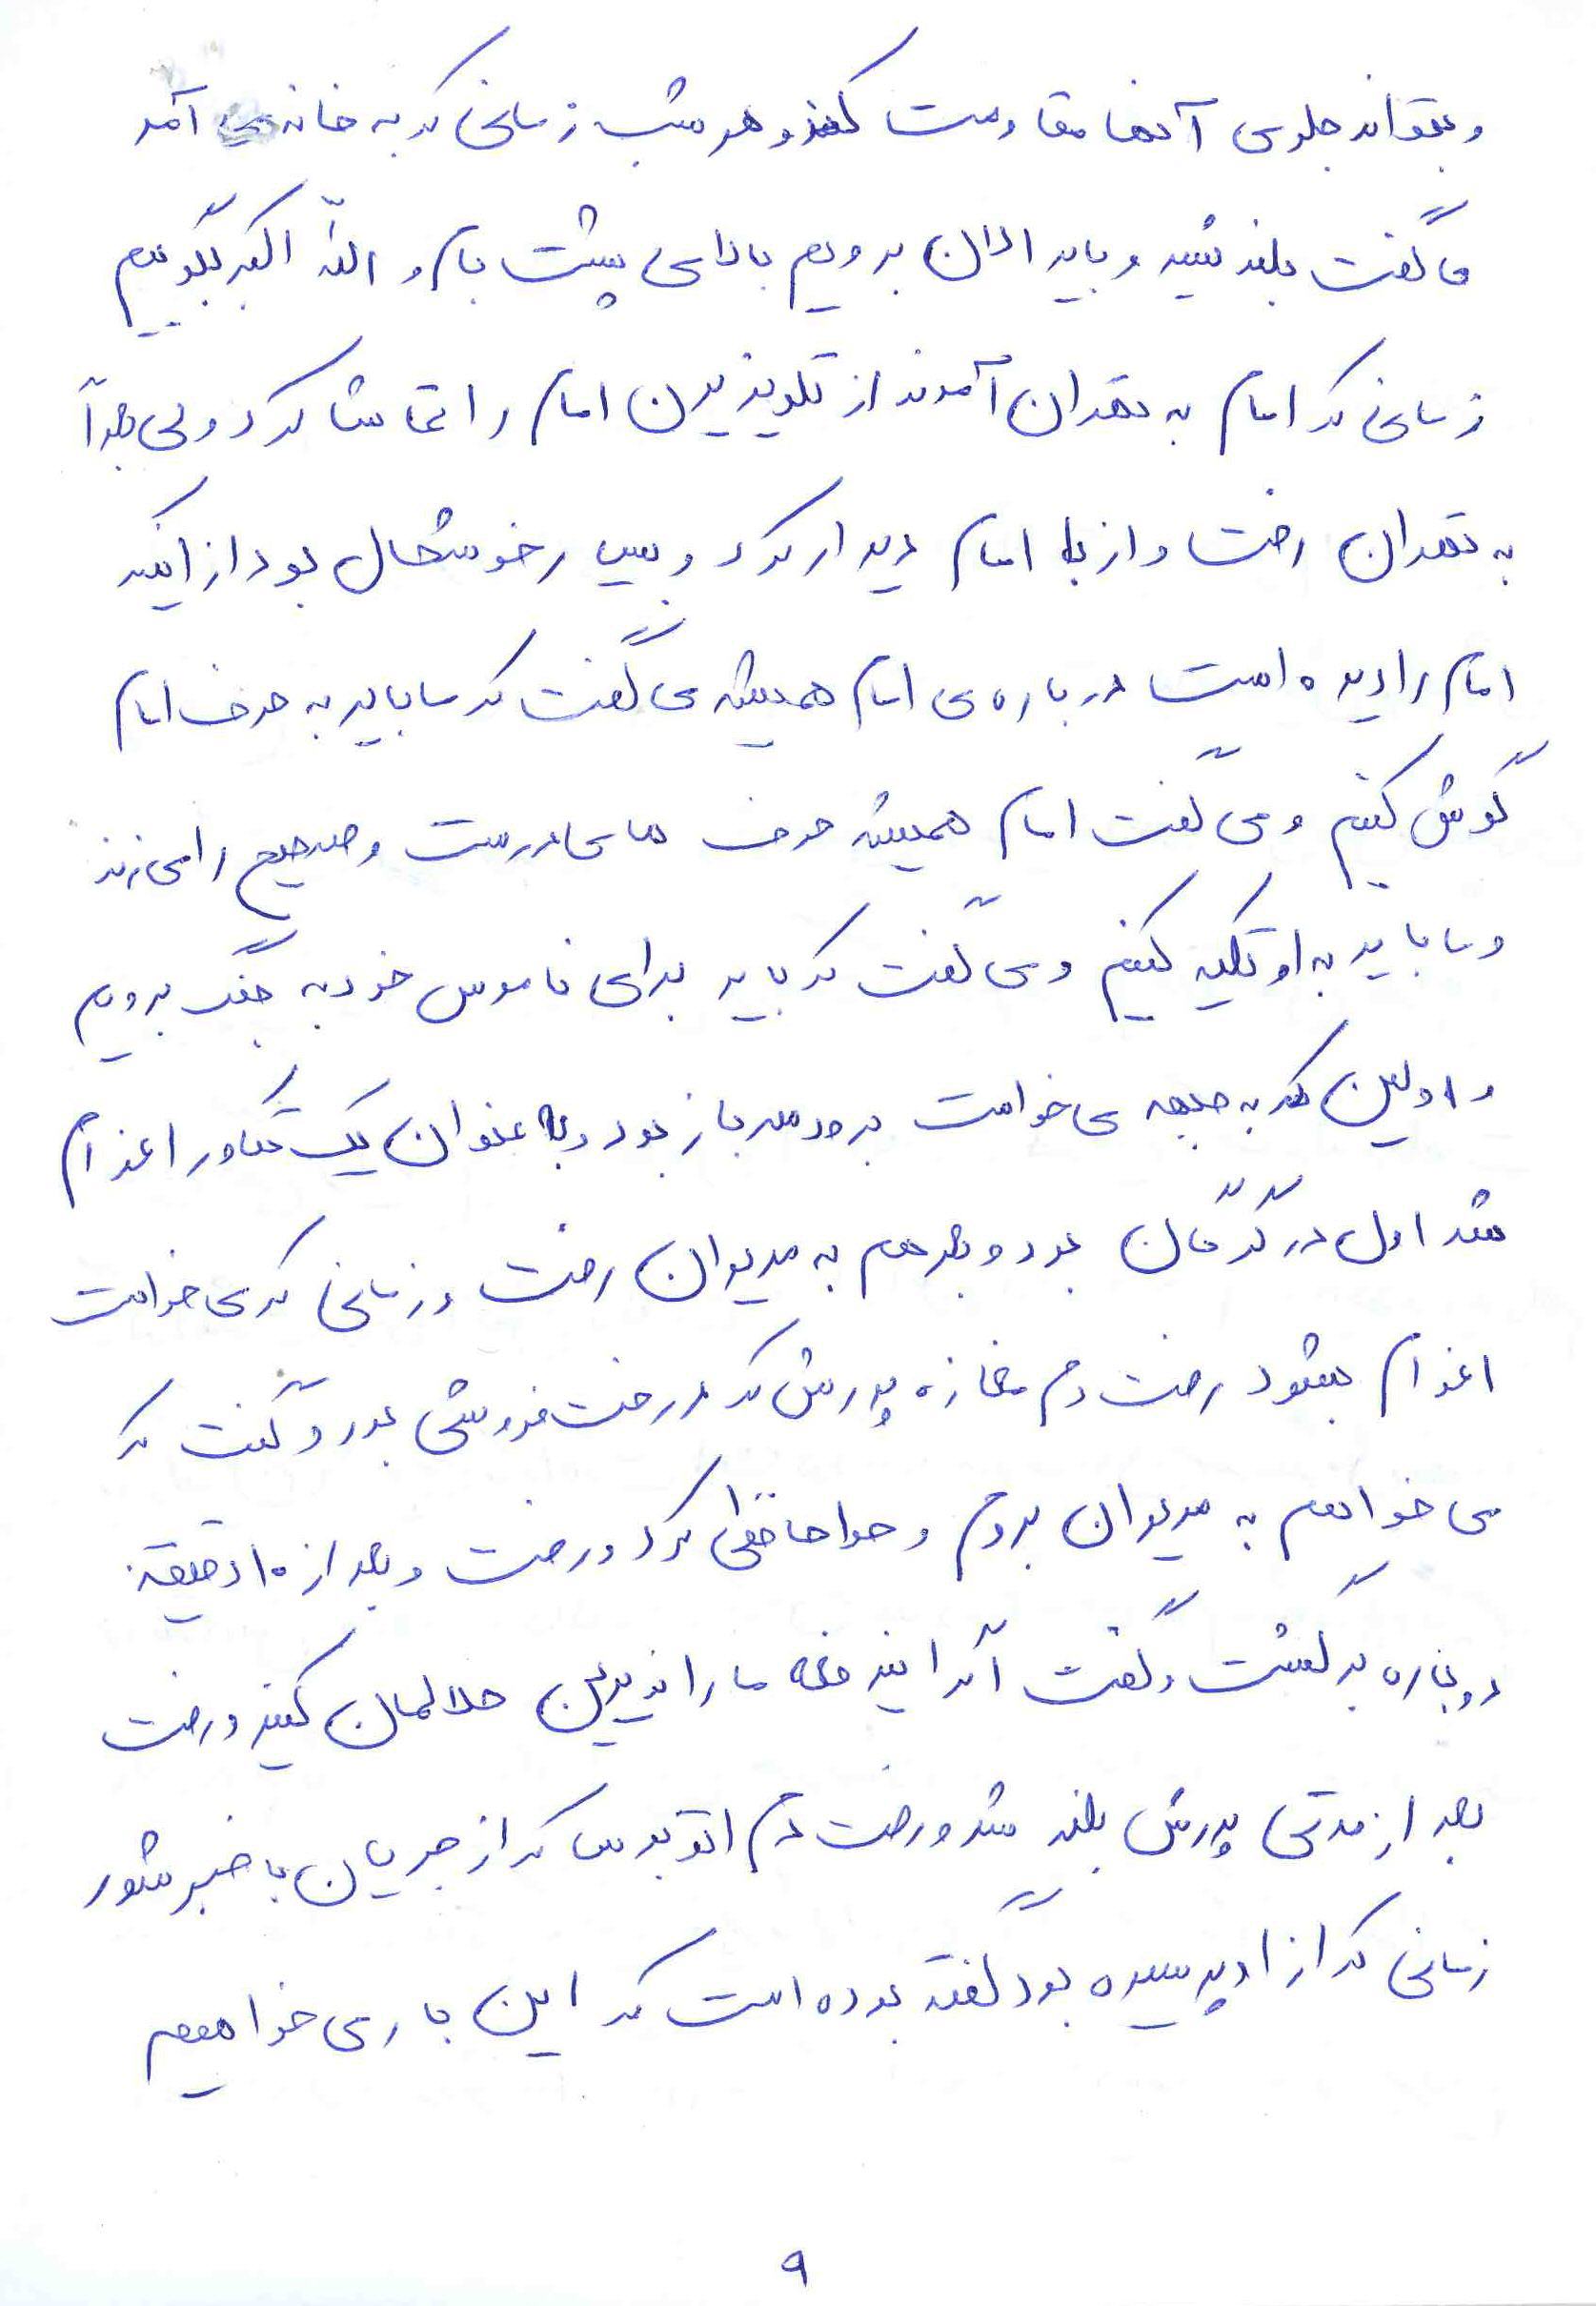 و بتواند جلوی آنها مقاومت کند و هر شب زمانی که به خانه می آمد
ما گفت بلند شید و باید الان برویم بالای پشت بام و الله اکبر بگوییم
زمانی که امام به تهران آمدند از تلویزیون امام را تماشا کرد ولی بعداً
به تهران رفت و از با امام دیدار کرد و بسیار خوشحال بود از اینکه
امام را دیده است درباره ی امام همیشه می گفت که ما باید به حرف امام
گوش کنیم و می گفت امام همیشه حرف های درست و صحیح را می زند
و ما باید به او تکیه کنیم و می گفت که باید برای ناموس خود به جنگ برویم
و اولین که به جبهه می خواست برود سرباز بود و به عنوان یک تکاور اعزام
شد اول در گرگان بود و بعد هم به مریوان رفت و زمانی که می خواست
اعزام بشود رفت دم مغازه پدرش که در رخت فروشی بود و گفت که
می خواهم به مریوان بروم و خداحافظی کرد و رفت و بعد از ۱۰ دقیقه
دوباره برگشت و گفت اگر این دفعه ما را ندیدین حلالمان کنید و رفت
بعد از مدتی پدرش بلند شد و رفت دم اتوبوس که از جریان با خبر شود
زمانی که از او پرسیده بود گفته بوده است که این بار می خواهیم
۹